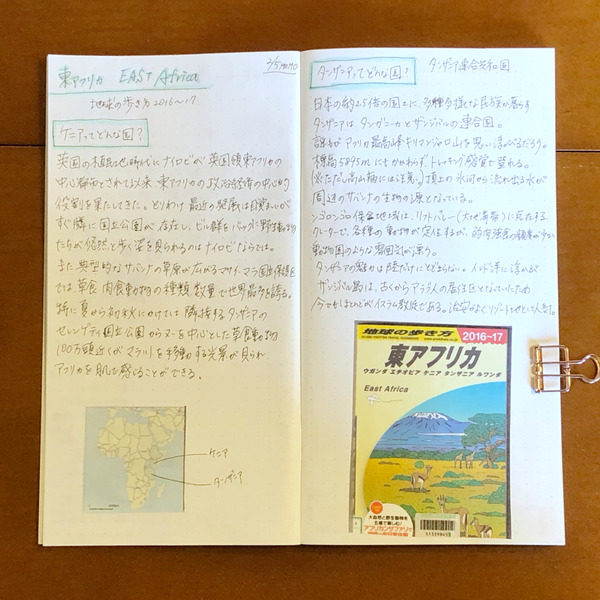 東アフリカ EAST Africa
地球の歩き方 2016〜17
ケニアってどんな国?
英国の植民地時代にナイロビが英国領東アフリカの
中心都市とされて以来 東アフリカの政治経済の中心的
役割を果たしてきた。とりわけ最近の発展は目覚ましいが
すぐ隣に国立公園が存在し、ビル群をバックに野生動物
たちが悠然と歩く姿を見られるのはナイロビならでは。
また典型的なサバンナの草原が広がるマサイ・マラ国立保護区
では草食、肉食動物の種類、数量で世界最多を誇る。
特に夏から初秋にかけては隣接するタンザニアの
セレンゲティ国立公園からヌーを中心とした草食動物
100万頭近くがマラ川を移動する光景が見られ、
アフリカを肌で感じることができる。
ケニア
タンザニア
タンザニアってどんな国?
タンザニア連合共和国
日本の約2.5倍の国土に、多種多様な民族が暮らす
タンザニアは、タンガニーカとザンジバルの連合国。
誰もがアフリカ最高峰キリマンジャロ山を思い浮かべるだろう。
標高5895mにもかかわらず、トレッキング感覚で登れる。
(※ただし高山病には注意) 頂上の氷河から流れ出る水が
周辺のサバンナの生物の源となっている。
ンゴロンゴロ保全地域は、リフトバレー(大地溝帯)に位置する
クレーターで、各種の動物が定住するが、弱肉強食の
動物園のような雰囲気が漂う。
タンザニアの魅力は陸だけにとどまらない。インド洋に浮かぶ
ザンジバル島は、古くからアラブ人の居住区となっていたため
今でもほとんどがイスラム教徒である。治安がよくリゾートとして人気。
地球の歩き方
2016~17
東アフリカ
ウガンダ エチオピア ケニア タンザニア ルワンダ
East Africa
大自然と野生動物を
五感で楽しむ!
アフリカンサファリで